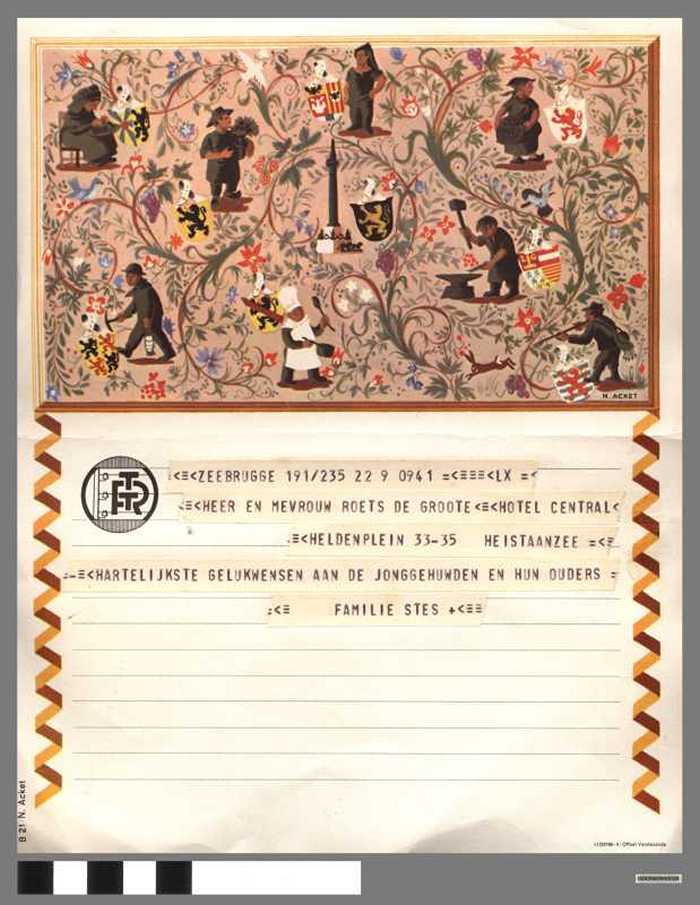 N. ACKET
RTT
<≡<ZEEBRUGGE 191/235 22 9 0941 =<≡≡≡<LX =<
<≡<HEER EN MEVROUW ROETS DE GROOTE<≡<HOTEL CENTRAL<
<≡<HELDENPLEIN 33-35 HEISTAANZEE =<≡
=≡<HARTELIJKSTE GELUKWENSEN AAN DE JONGGEHUWDEN EN HUN OUDERS =
:<≡ FAMILIE STES +<≡≡
B 21 N. Acket